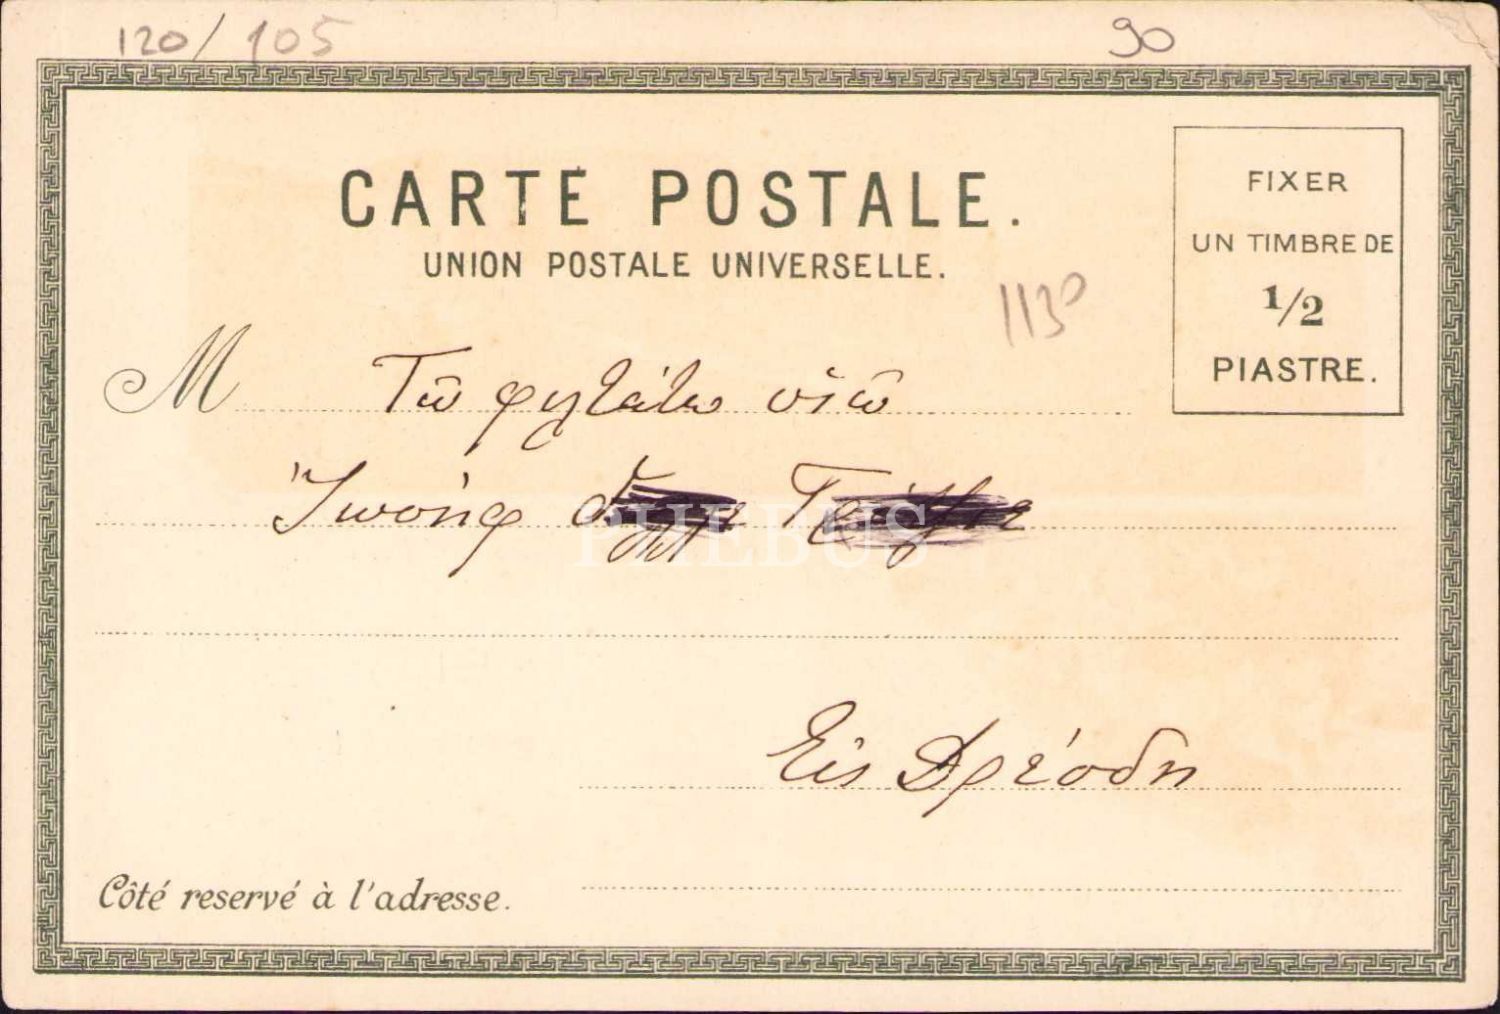 120/ 105
90
CARTE POSTALE.
UNION POSTALE UNIVERSELLE.
FIXER
UN TIMBRE DE
1/2
PIASTRE.
1130
M Τῷ φιλτάτῳ υἱῷ
Ἰωσὴφ
PHEBUS
Εἰς Δρέσδη
Côté reservé à l'adresse.